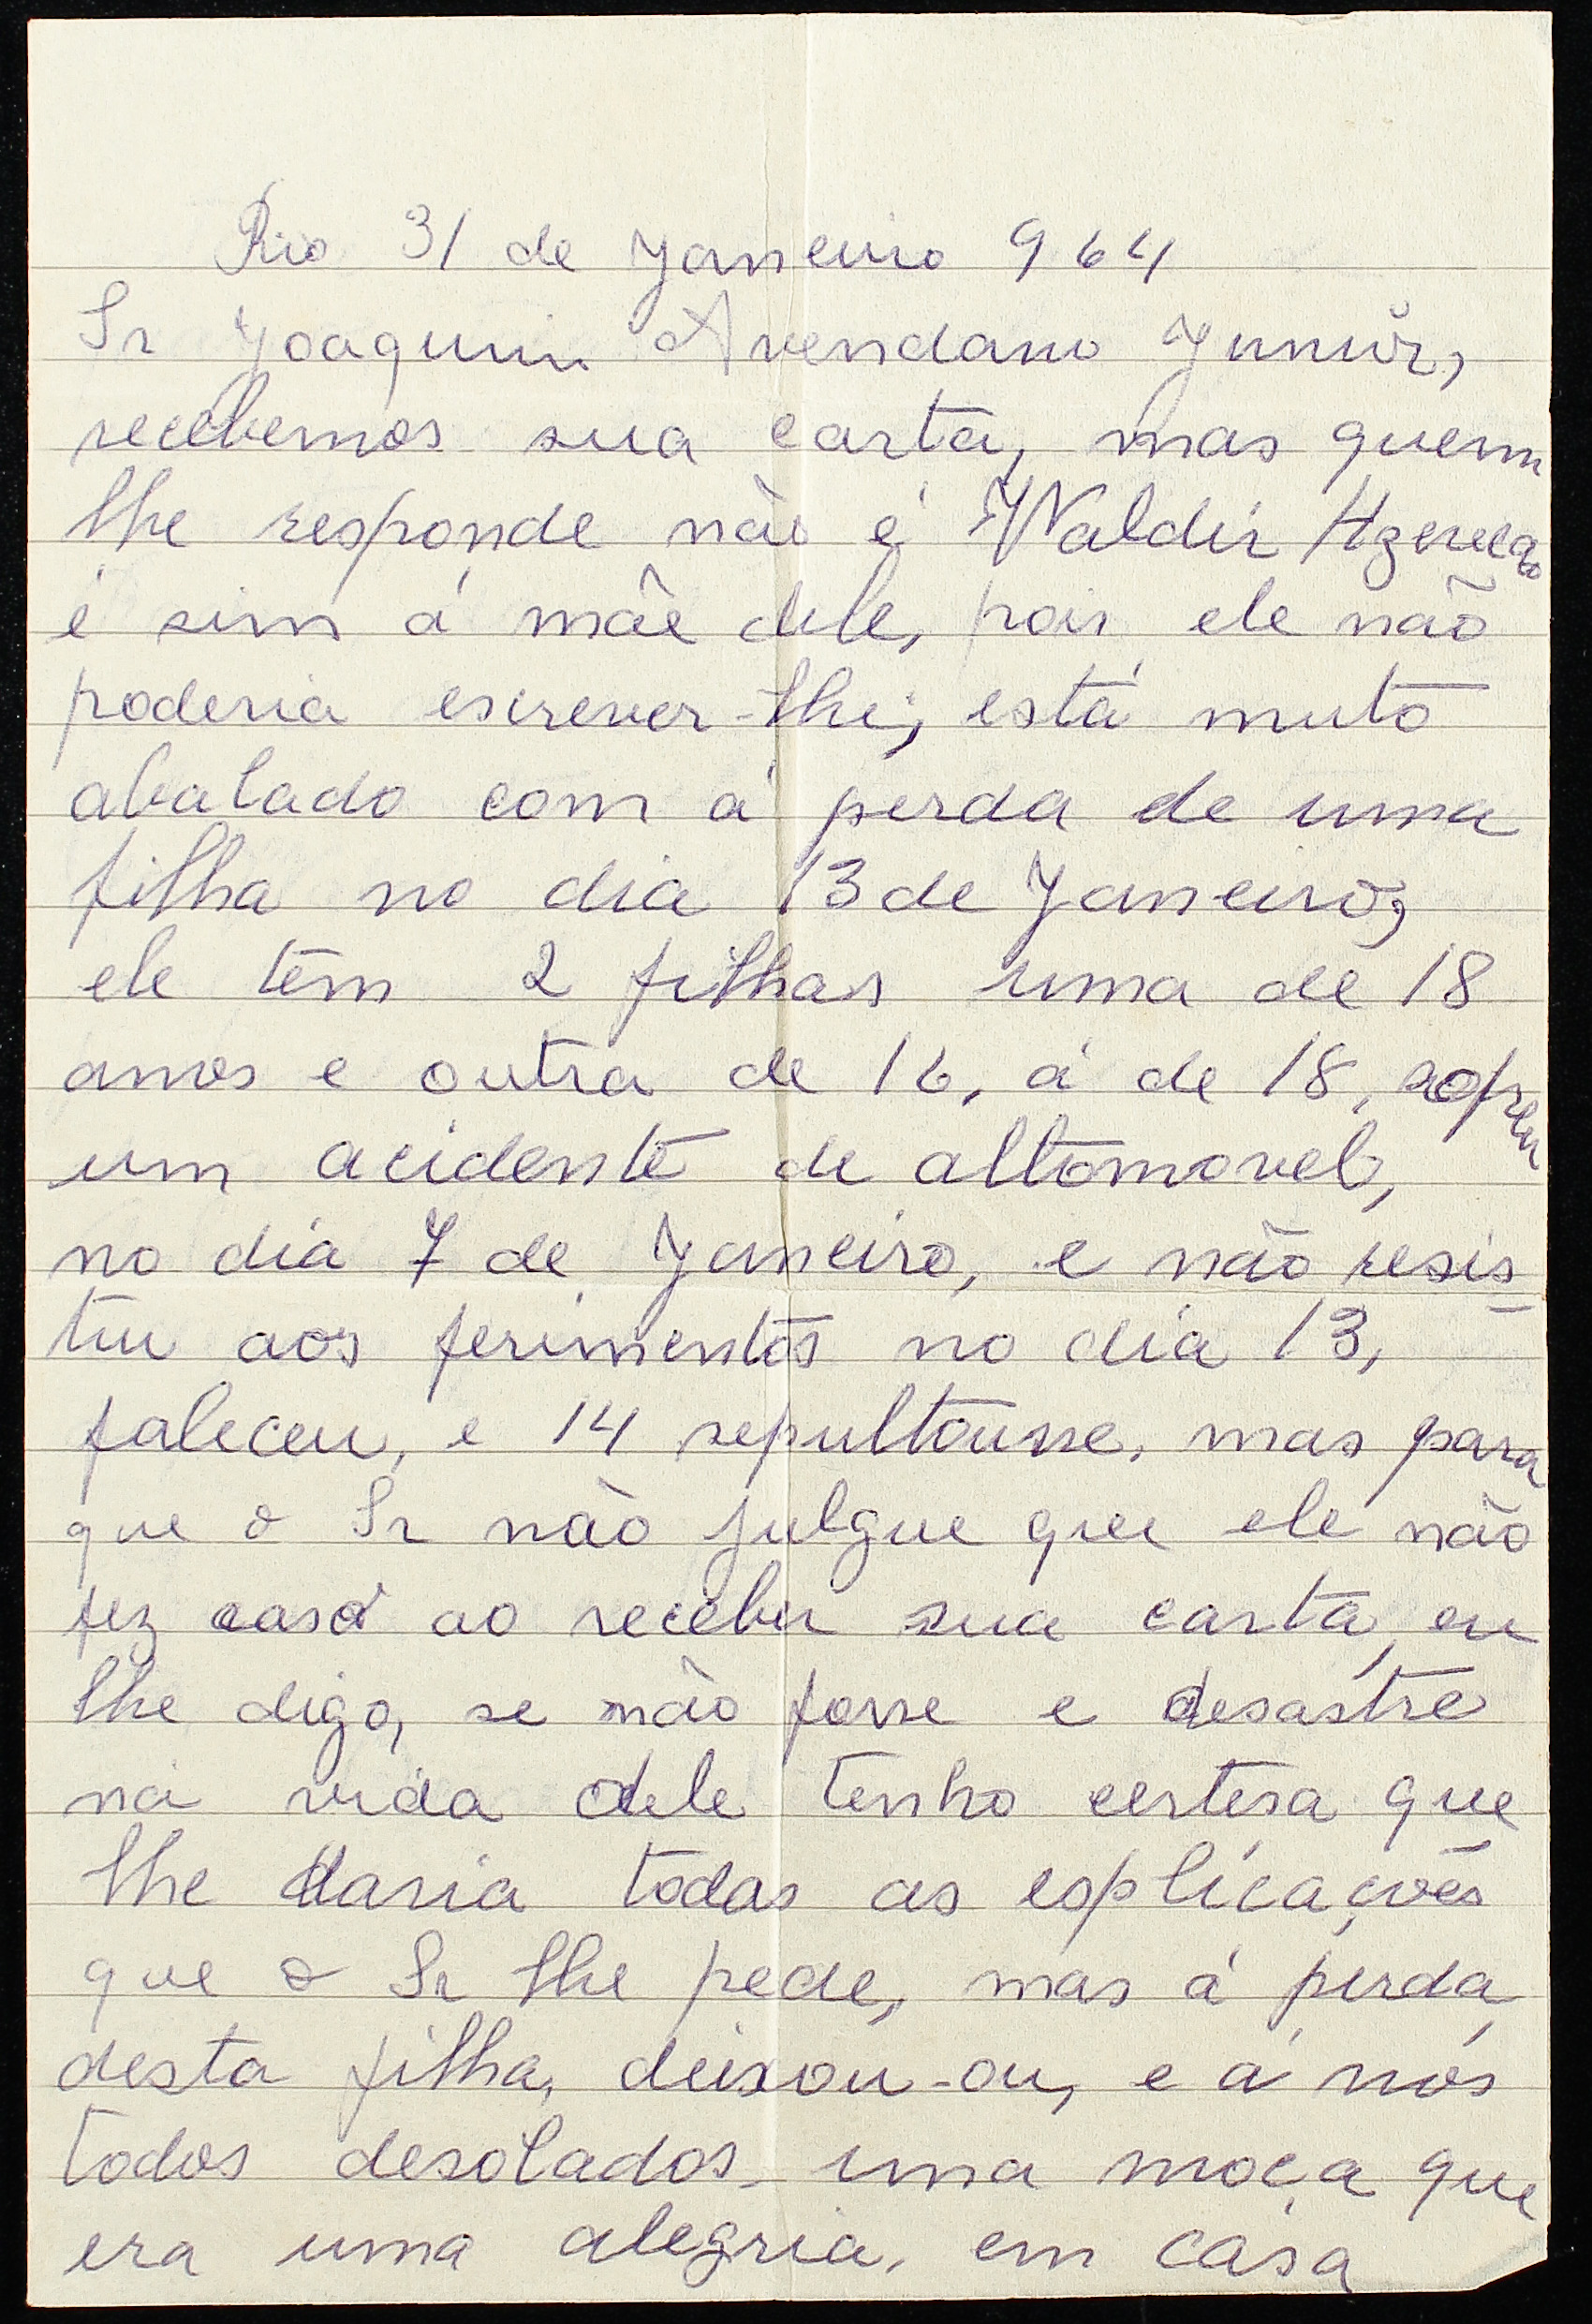 Rio 31 de Janeiro 964
Sr Joaquim Avendano Junior,
recebemos sua carta, mas quem
lhe responde não é Waldir Azevedo
é sim á mãe dele, pois ele não
poderia escrever-lhe; está muto
abalado com á perda de uma
filha no dia 13 de Janeiro,
ele têm 2 filhas uma de 18
anos e outra de 16, á de 18, sofreu
um acidente de altomovel,
no dia 7 de Janeiro, e não resis
tiu aos ferimentos no dia 13,
faleceu, e 14 sepultousse, mas para
que o Sr não julgue que ele não
fez caso ao receber sua carta, eu
lhe digo, se não fosse e desastre
na vida dele tenho certesa que
lhe daria todas as esplicações
que o Sr lhe pede, mas á perda
desta filha, deixou-ou, e á nós
todos desolados uma moça que
era uma alegria, em casa